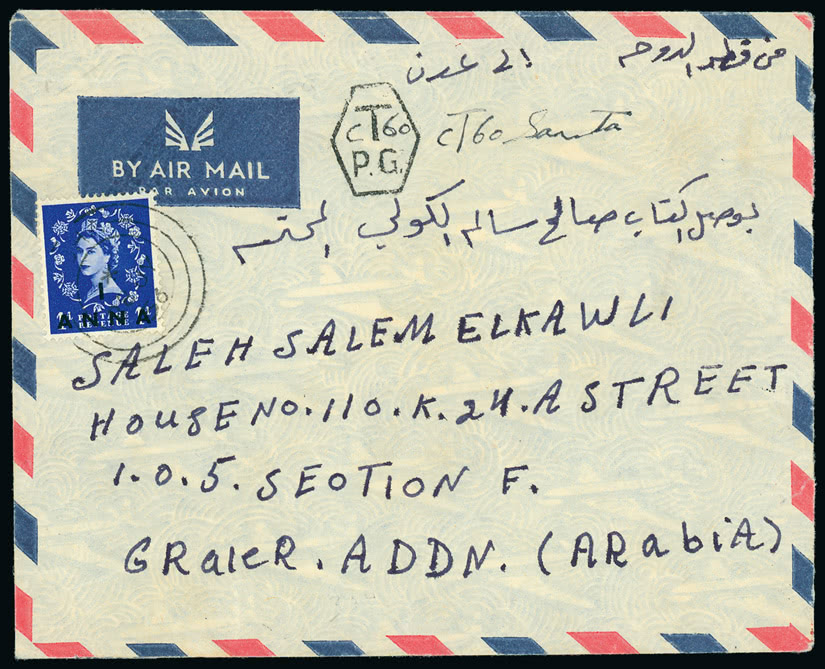 من قطر الدوحه الى عدن
T
CT60
P.G.
CT60 Santa
BY AIR MAIL
PAR AVION
يوصل الكتاب صالح سالم الكولي المحترم
1
ANNA
POSTAGE
REVENUE
SALEH SALEM ELKAWLI
HOUSE NO. 110. K. 24. A STREET
1. 0. 5. SEOTION F.
GRaleR. ADDN. (ARabiA)